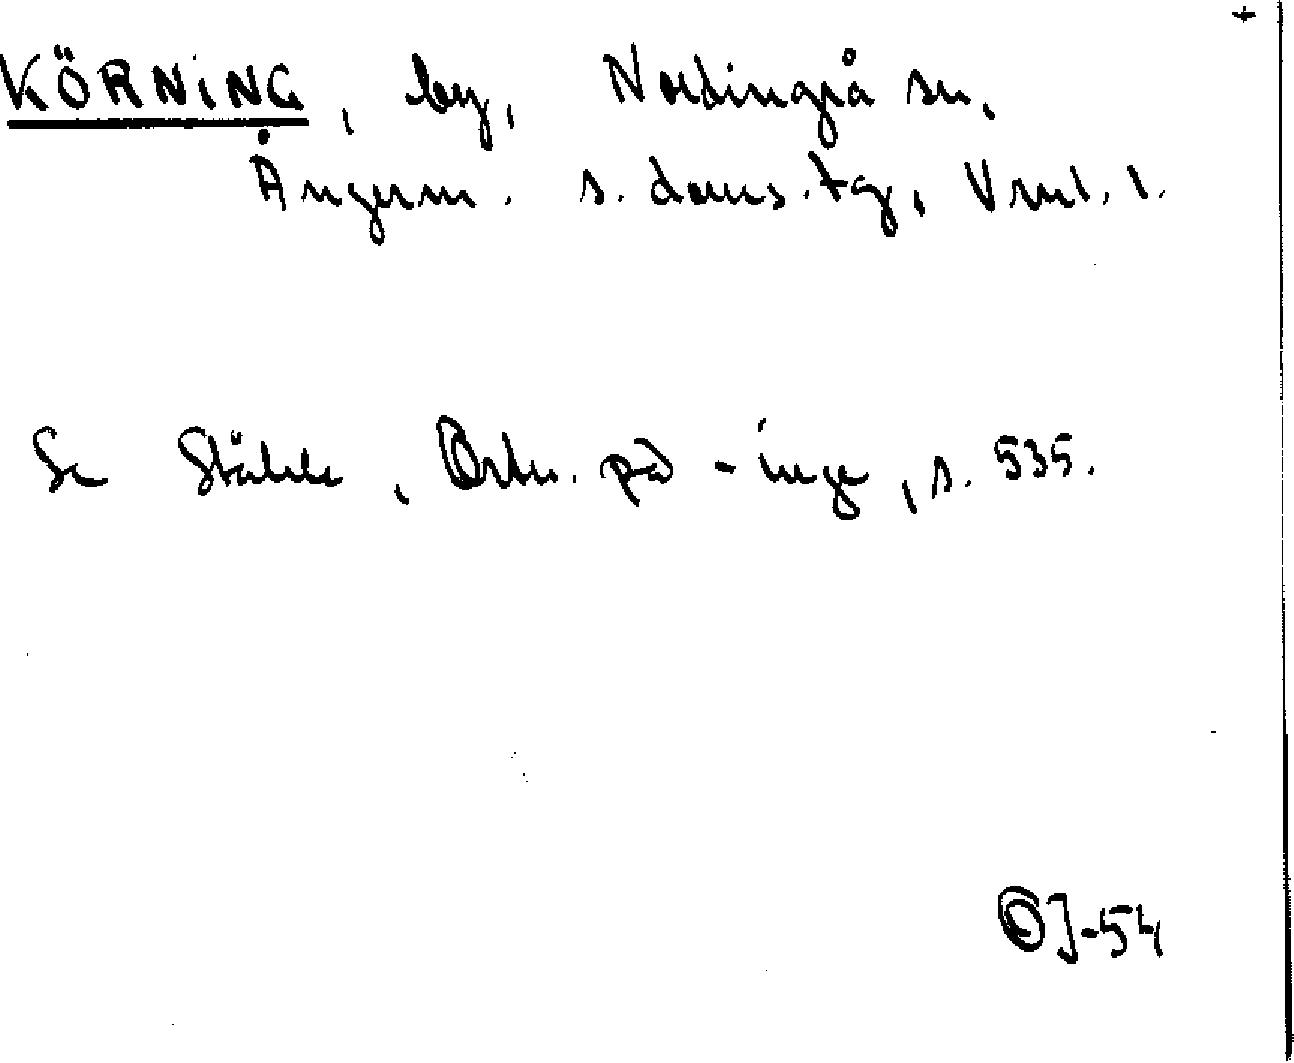 KÖRNING, by, Nordingrå sn,
Ångerm. s. doms. tg, Vrnl. l.
Se Ståhle, Ortn. på -inge, s. 535.
OJ-54